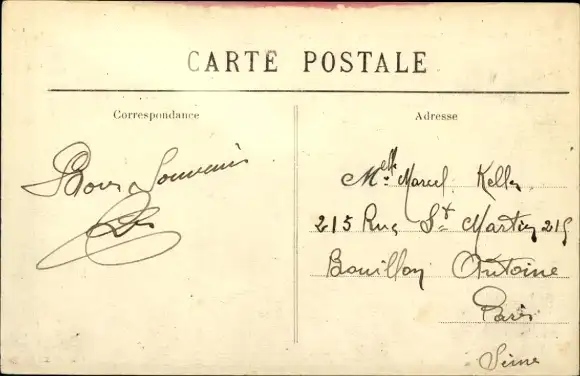 CARTE POSTALE
Correspondance
Adresse
Bons Souvenirs
Melle Marcel Keller
215 Rue St Martin 215
Bouillon Antoine
Paris
Seine